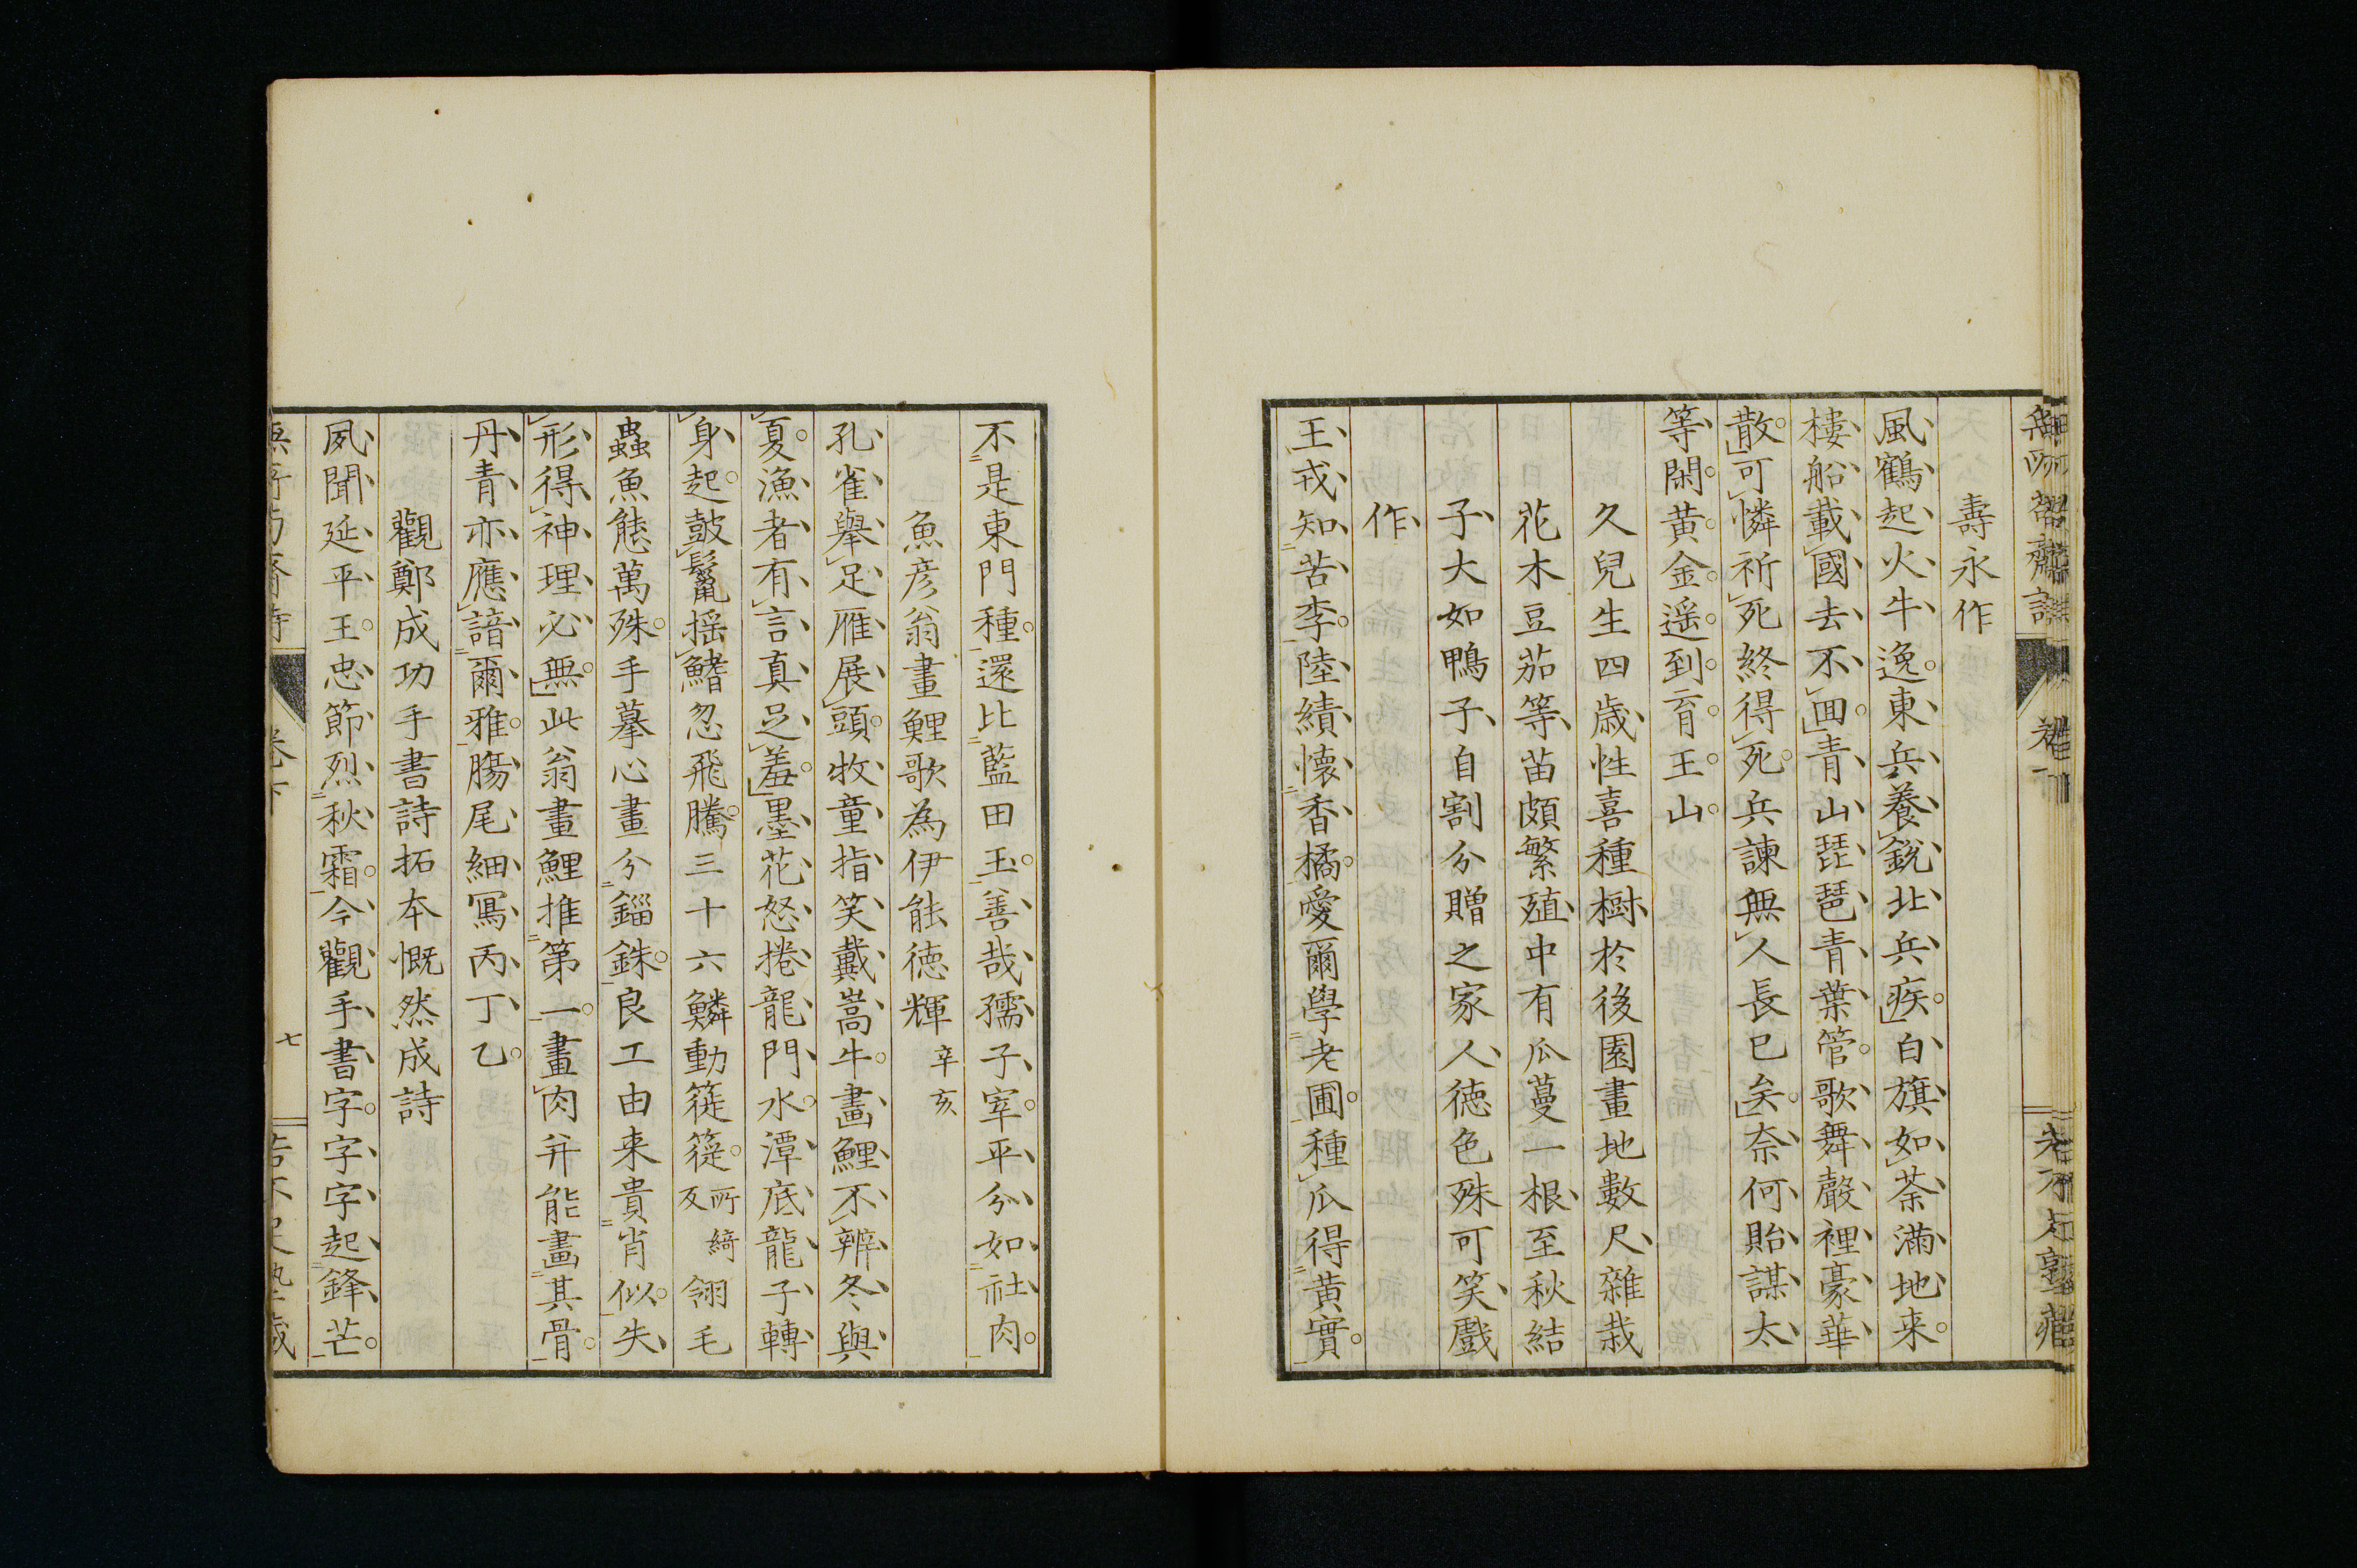 壽永作
風鶴起火牛逸東兵養銳北兵疾白旗如荼滿地来
樓船載國去不回青山琵琶青葉管歌舞聲裡豪華
散可憐祈死終得死兵諫無人長已矣奈何貽謀太
等閑黄金遥到育王山
久兒生四歳性喜種樹於後園畫地數尺雜栽
花木豆茄等苗頗繁殖中有瓜蔓一根至秋結
子大如鴨子自割分贈之家人徳色殊可笑戲
作
王戎知苦李陸績懐香橘愛爾學老圃種瓜得黄實
不是東門種還比藍田玉善哉孺子宰平分如社肉
魚彦翁畫鯉歌為伊能徳輝 辛亥
孔雀擧足雁展頭牧童指笑戴嵩牛畫鯉不辨冬與
夏漁者有言真足羞墨花怒捲龍門水潭底龍子轉
身起鼓鬣揺鰭忽飛騰三十六鱗動簁簁 所綺反 翎毛
蟲魚態萬殊手摹心畫分錙銖良工由来貴肖似失
形得神理必無此翁畫鯉推第一畫肉并能畫其骨
丹青亦應諳爾雅腸尾細寫丙丁乙
觀鄭成功手書詩拓本慨然成詩
夙聞延平王忠節烈秋霜今觀手書字字字起鋒芒
七